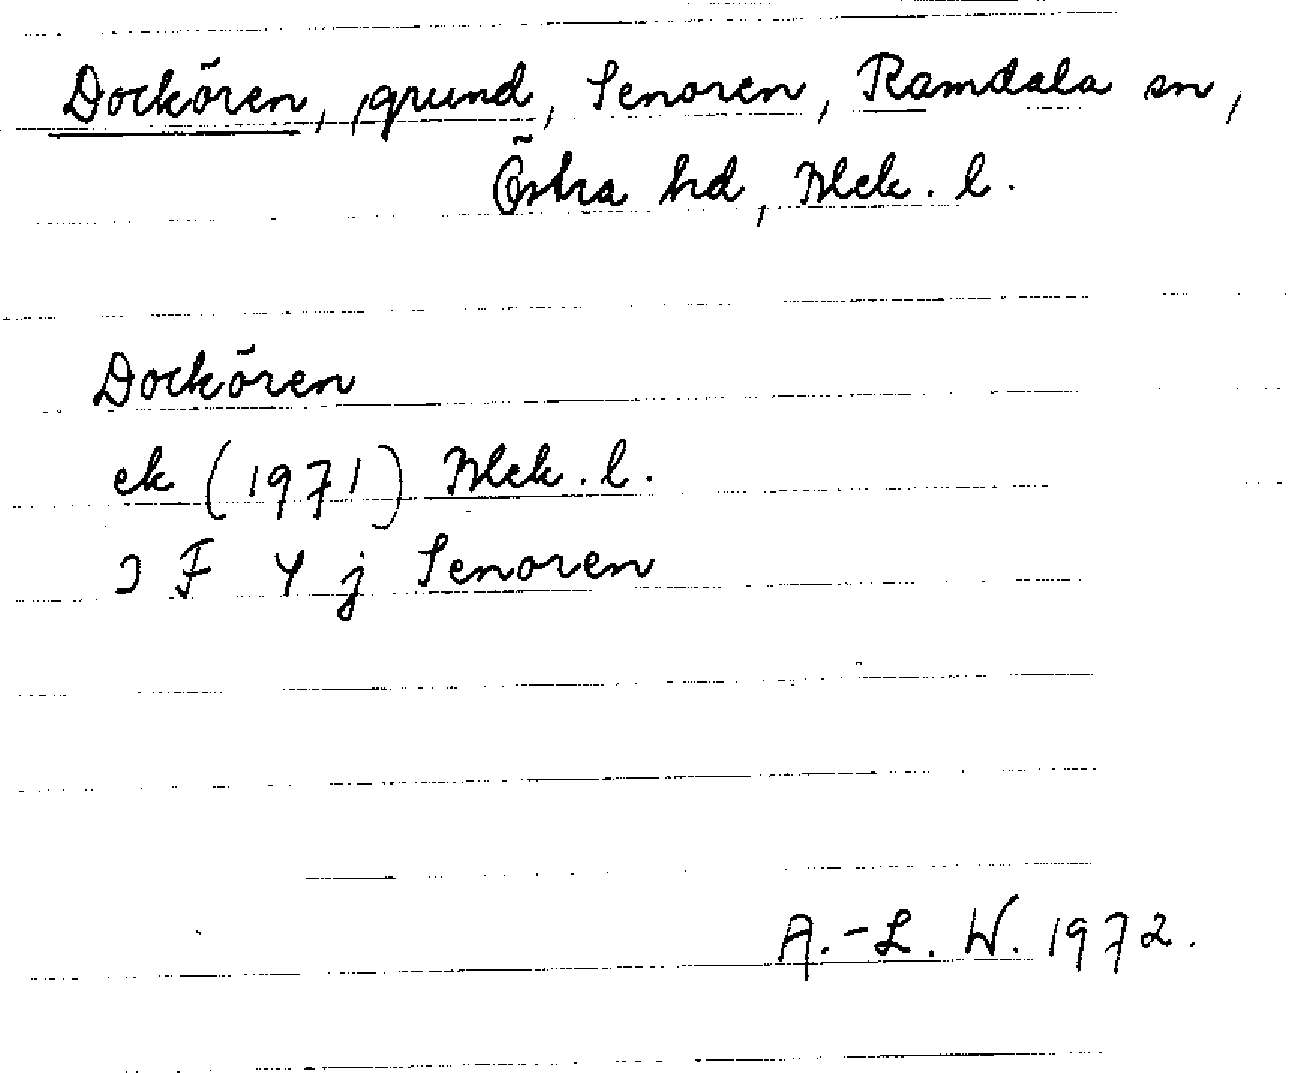 Dockören, grund, Senoren, Ramdala sn,
Östra hd, Blek. l.
Dockören
ek (1971) Blek. l.
3 F 4 j Senoren
A.-L. W. 1972.